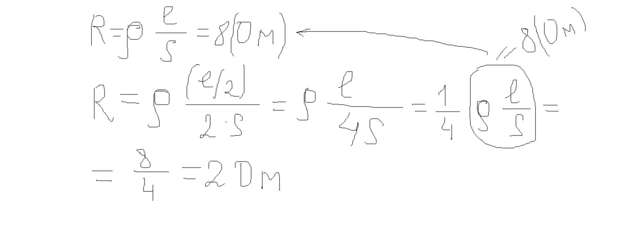 R = ρ l/S = 8(Ом)
8(Ом)
R = ρ (l/2)/(2·S) = ρ l/4S = 1/4 ρ l/S =
= 8/4 = 2 Ом